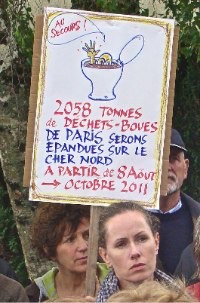 AU
SECOURS!
2058 TONNES
de DECHETS-BOUES
DE PARIS SERONS
EPANDUES SUR LE
CHER NORD
A PARTIR de 8 AOUT
→ OCTOBRE 2011